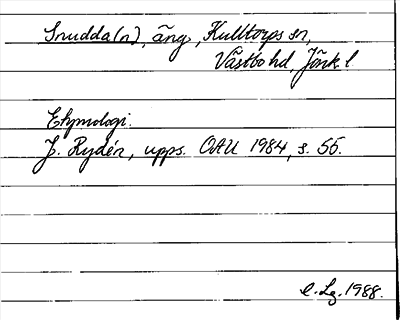 Snudda(n), äng, Kulltorps sn,
Västbo hd, Jönk l
Etymologi.
J. Rydén, upps. OAU 1984, s. 55.
E. Lg. 1988.